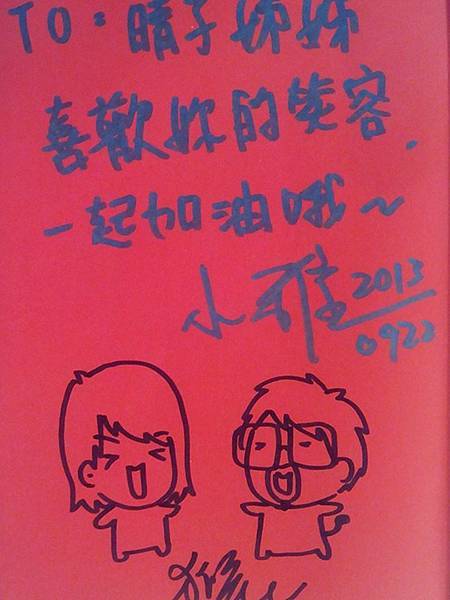 TO：晴子姊姊
喜歡妳的笑容.
一起加油哦～
小雅 2013
0922